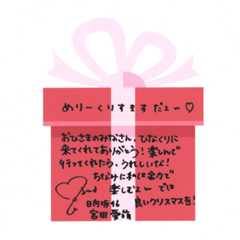 めりーくりすますだよー♡
おひさまのみなさん、ひなくりに
来てくれてありがとう！楽しんで
行ってくれたら、うれしいな！
ちなみに私は全力で
楽しむよー では
日向坂46 良いクリスマスを！
宮田